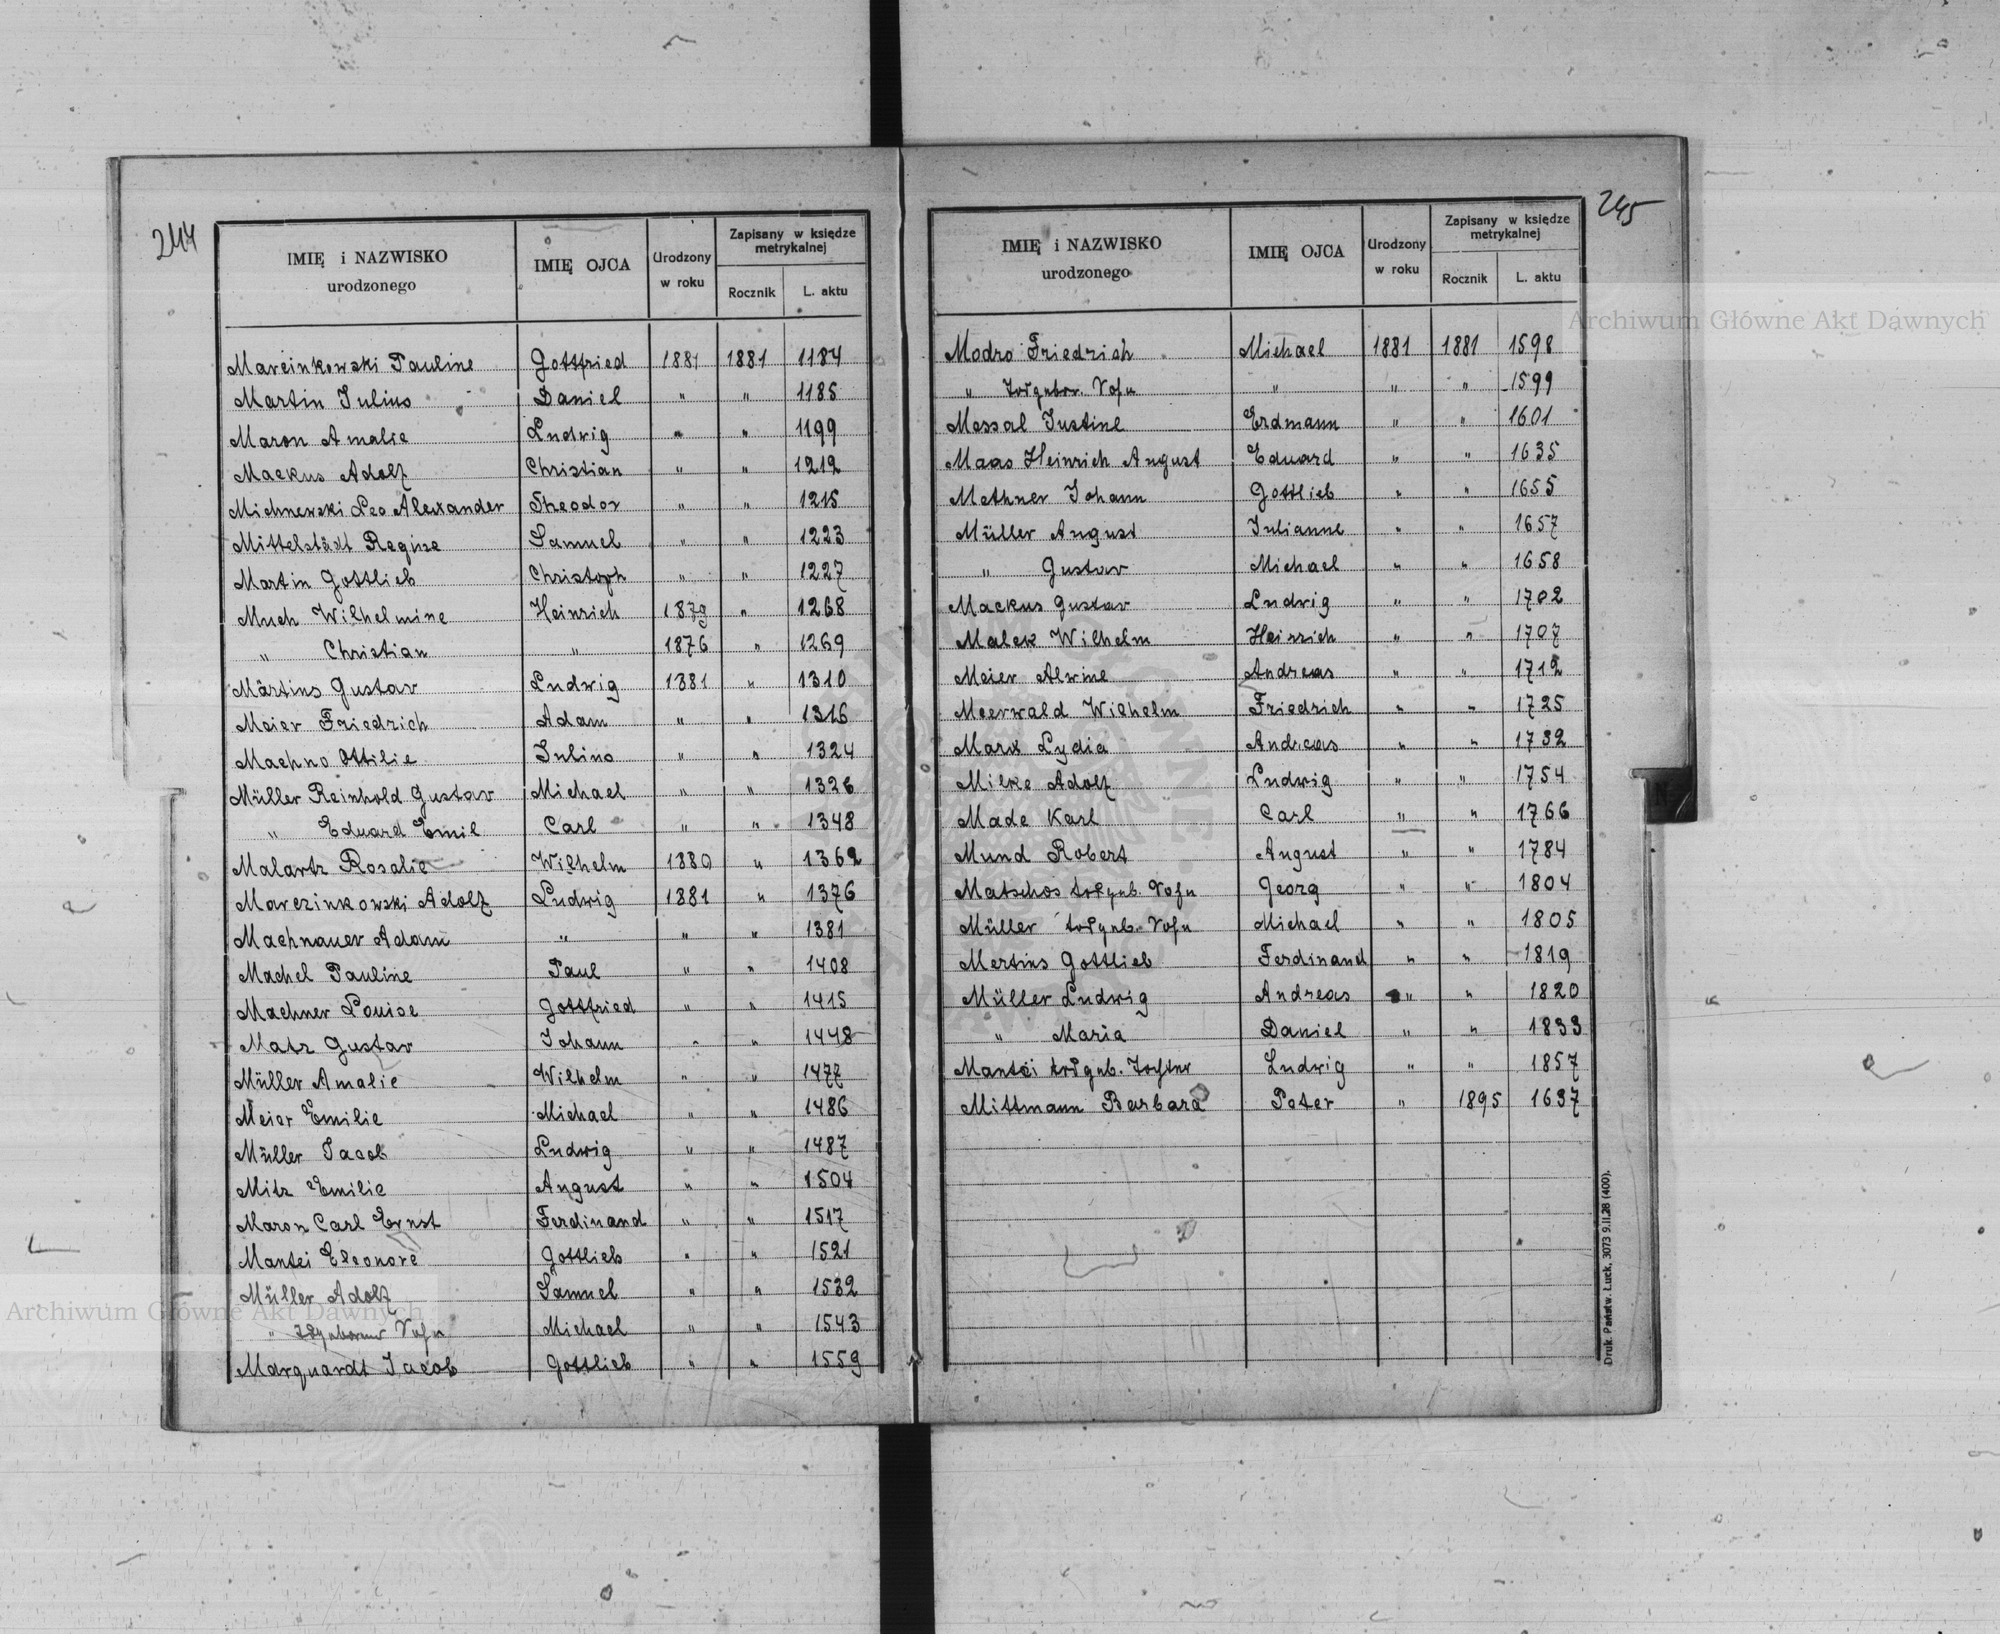 244
IMIĘ i NAZWISKO urodzonego IMIĘ OJCA Urodzony w roku Zapisany w księdze metrykalnej Rocznik L. aktu
Marcinkowski Pauline Gottfried 1881 1881 1184
Martin Julius Daniel " " 1185
Maron Amalie Ludwig " " 1199
Mackus Adolf Christian " " 1212
Michnewski Leo Alexander Theodor " " 1215
Mittelstädt Regine Samuel " " 1223
Martin Gottlieb Christoph " " 1227
Much Wilhelmine Heinrich 1879 " 1268
" Christian " 1876 " 1269
Märtins Gustav Ludwig 1881 " 1310
Meier Friedrich Adam " " 1316
Machno Ottilie Julius " " 1324
Müller Reinhold Gustav Michael " " 1326
" Eduard Emil Carl " " 1348
Malartz Rosalie Wilhelm 1880 " 1362
Marczinkowski Adolf Ludwig 1881 " 1376
Machnauer Adam " " " 1381
Machel Pauline Paul " " 1408
Machner Louise Gottfried " " 1415
Matz Gustav Johann " " 1448
Müller Amalie Wilhelm " " 1477
Meier Emilie Michael " " 1486
Müller Jacob Ludwig " " 1487
Mitz Emilie August " " 1504
Maron Carl Ernst Ferdinand " " 1517
Mantei Eleonore Gottlieb " " 1521
Müller Adolf Samuel " " 1532
" Sohn Michael " " 1543
Marquardt Jacob Gottlieb " " 1559
245
IMIĘ i NAZWISKO urodzonego IMIĘ OJCA Urodzony w roku Zapisany w księdze metrykalnej Rocznik L. aktu
Modro Friedrich Michael 1881 1881 1598
" totgebor. Sohn " " " 1599
Messal Justine Erdmann " " 1601
Maas Heinrich August Eduard " " 1635
Methner Johann Gottlieb " " 1655
Müller August Julianne " " 1657
" Gustav Michael " " 1658
Mackus Gustav Ludwig " " 1702
Malek Wilhelm Heinrich " " 1707
Meier Alwine Andreas " " 1712
Meerwald Wilhelm Friedrich " " 1725
Marx Lydia Andreas " " 1732
Milke Adolf Ludwig " " 1754
Made Karl Carl " " 1766
Mund Robert August " " 1784
Matschos totgeb. Sohn Georg " " 1804
Müller totgeb. Sohn Michael " " 1805
Mertins Gottlieb Ferdinand " " 1819
Müller Ludwig Andreas " " 1820
" Maria Daniel " " 1833
Mantei totgeb. Tochter Ludwig " " 1857
Mittmann Barbara Peter " 1895 1637
Druk. Państw. Łuck, 3073 9.II.28 (400).
Archiwum Główne Akt Dawnych
Archiwum Główne Akt Dawnych